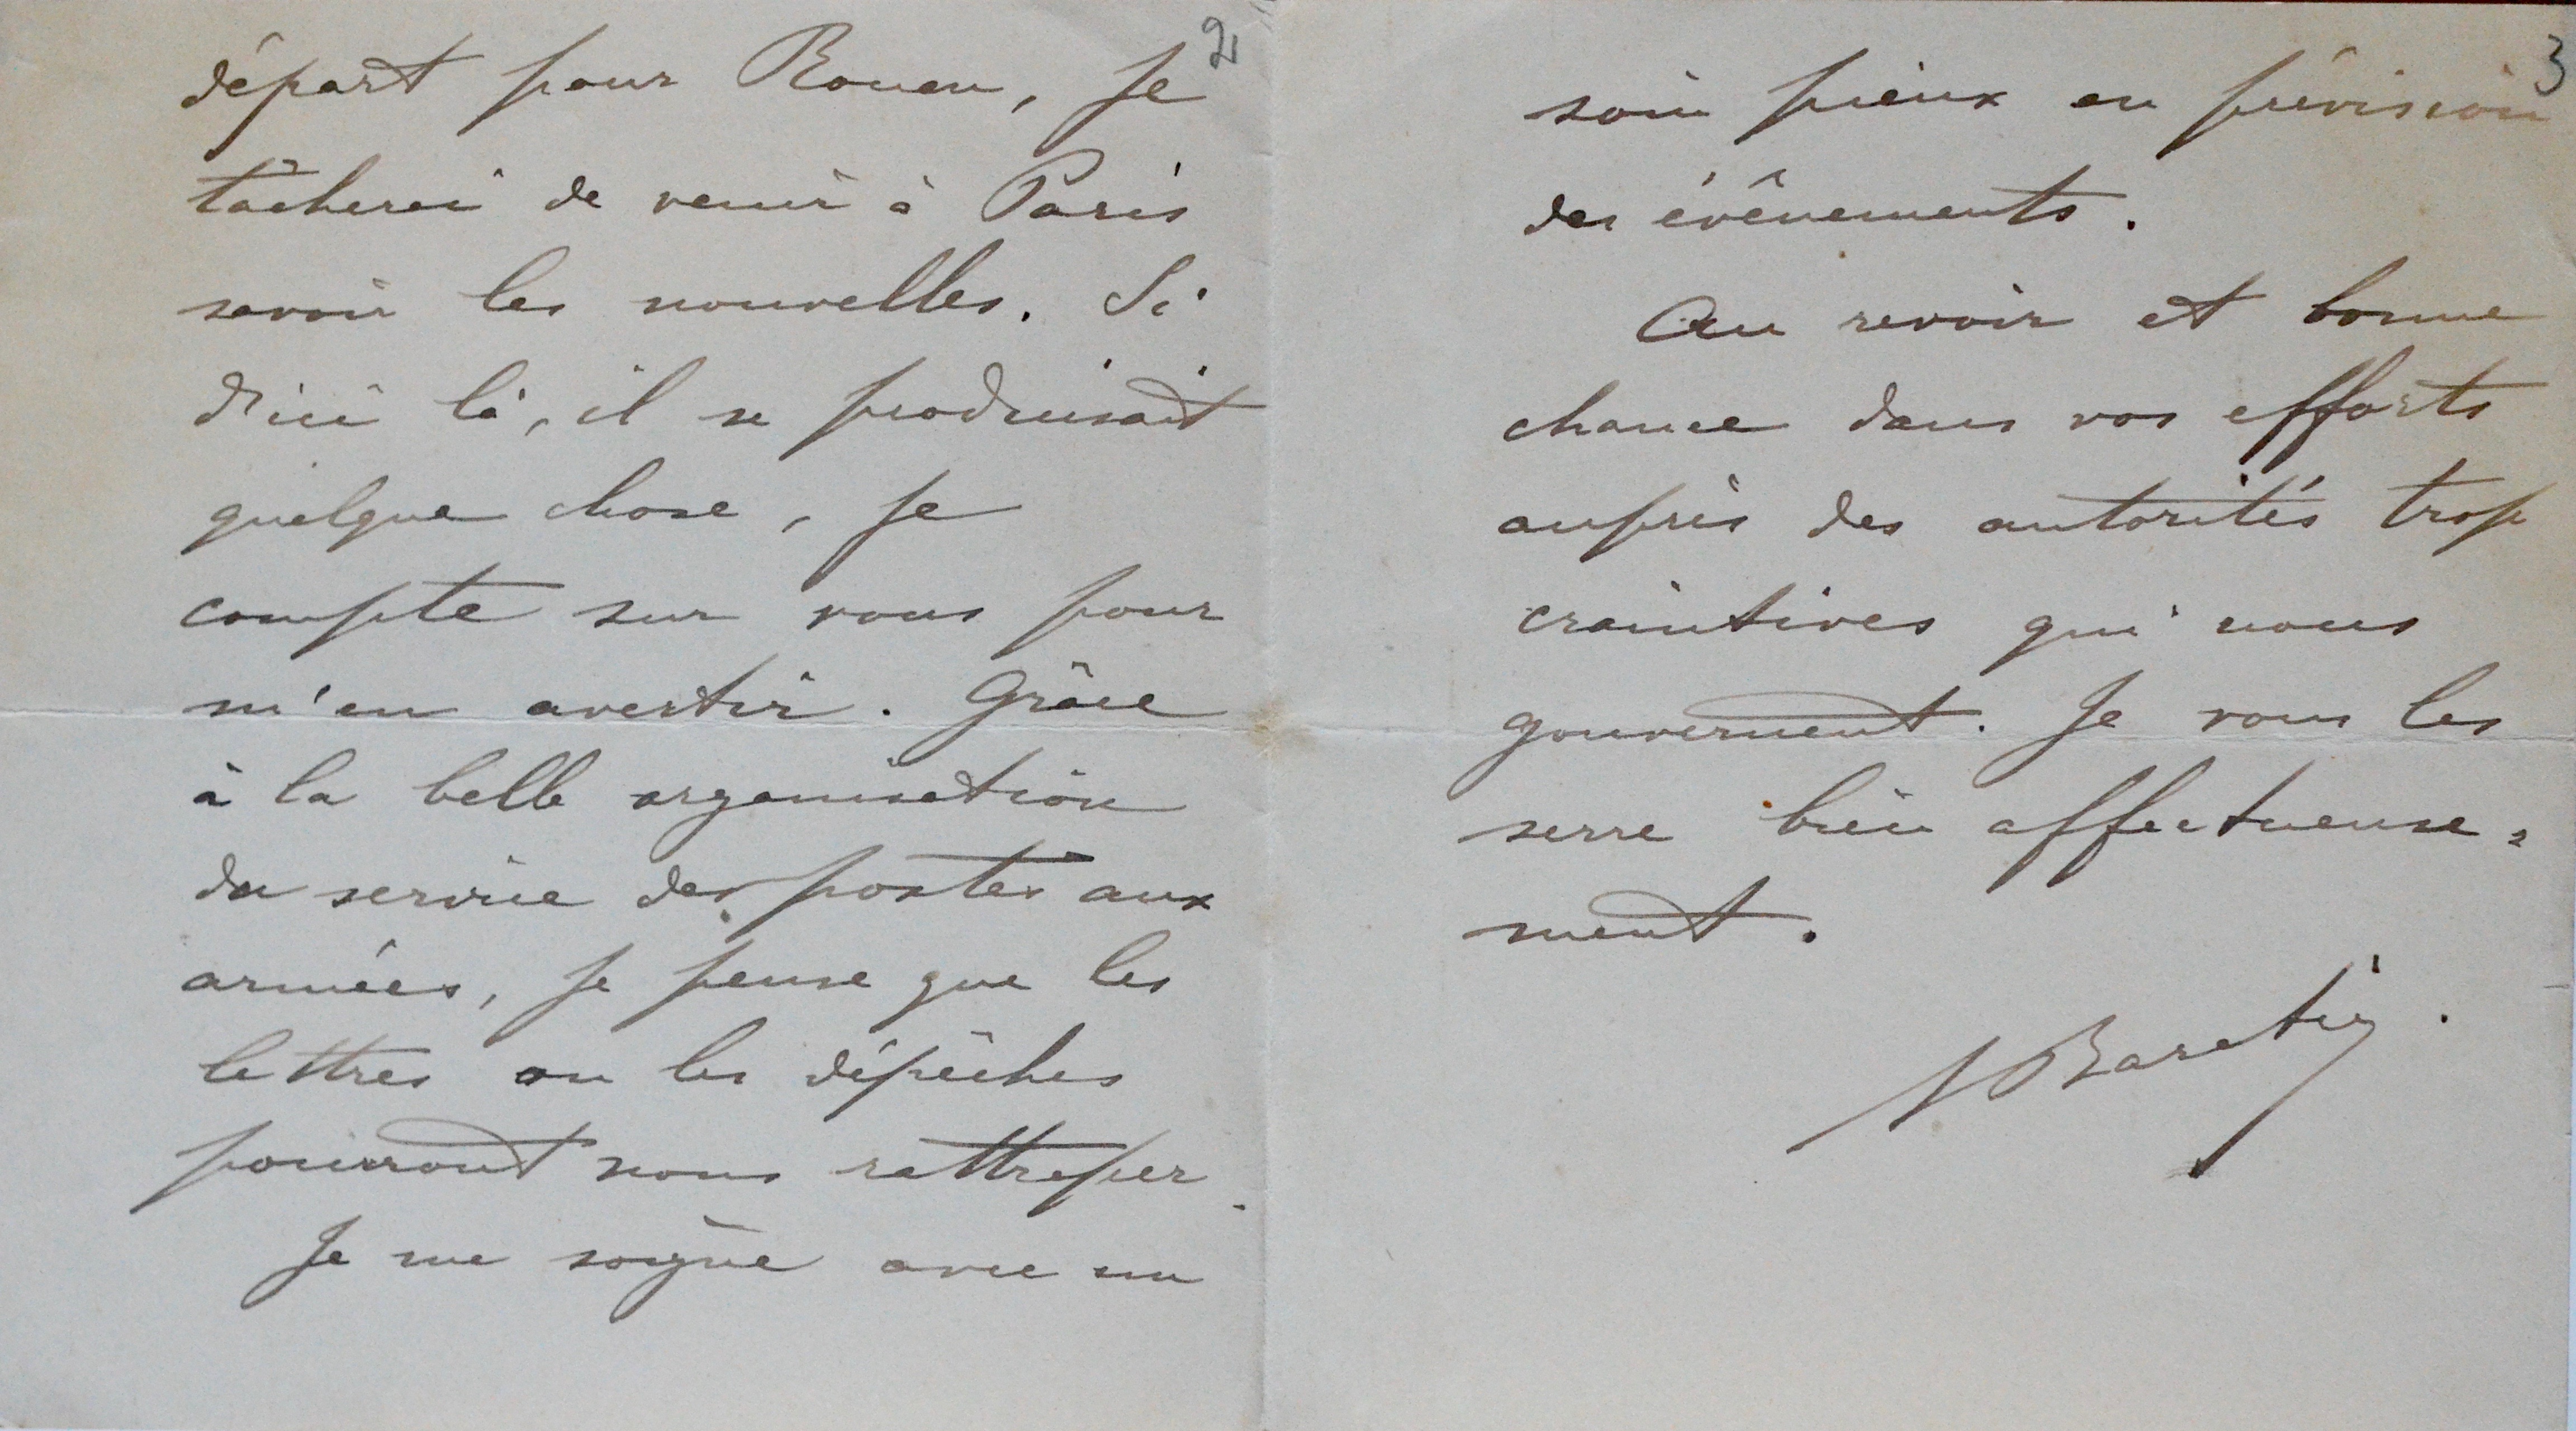 2
départ pour Rouen, je
tâcherai de venir à Paris
savoir les nouvelles. Si
d'ici là, il se produisait
quelque chose, je
compte sur vous pour
m'en avertir. Grâce
à la belle organisation
du service des postes aux
armées, je pense que les
lettres ou les dépêches
pourront nous rattraper.
Je me soigne avec un
3
soin pieux en prévision
des évênements.
Au revoir et bonne
chance dans vos efforts
auprès des autorités trop
craintives qui nous
gouvernent. Je vous les
serre bien affectueuse=
ment.